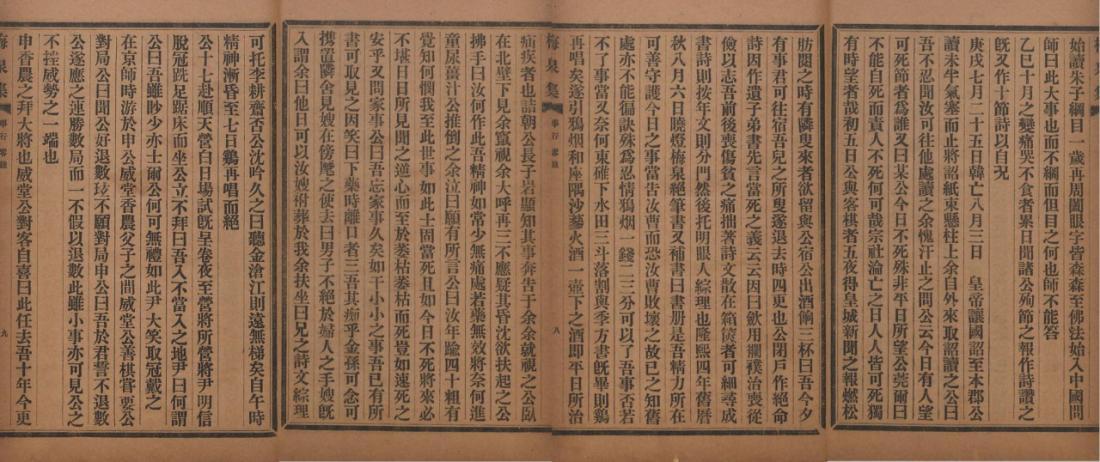 始讀朱子綱目一歲再周闔眼字皆森森至佛法始入中國問
師曰此大事也而不綱而但目之何也師不能答
乙巳十月之變痛哭不食者累日聞諸公殉節之報作詩讚之
旣又作十節詩以自況
庚戌七月二十五日韓亡八月三日 皇帝讓國詔至本郡公
讀未半氣塞而止將詔紙東懸柱上余自外來取詔讀之公曰
吾不忍聞汝可往他處讀之余愧汗止之間公云今日有人望
可死節者爲誰又曰某公今日不死殊非平日所望公莞爾曰
不能自死而責人不死何可哉宗社淪亡之日人人皆可死獨
有時望者哉初五日公與客棋者五夜得皇城新聞之報燃松
肪閱之時有隣叟來者欲留與公宿公出酒餉三杯曰吾今夕
有事君可往宿吾兒之所叟遂退去時四更也公閉戶作絕命
詩因作遺子弟書先言當死之義云云因曰斂用襴襆治喪從
儉以志吾前後喪傷貧之痛拙著詩文散在箱篋者可細尋成
書詩則按年文則分門然後托明眼人綜理也隆熙四年舊曆
秋八月六日曉燈梅泉絕筆書又補書曰書册是吾精力所在
可善守護今日之事當告汝曹而恐汝曹敗壞之故已之知舊
處亦不能徧訣殊爲忍情鴉烟一錢二三分可以了吾事否若
不了事當又奈何東確下水田三斗落割與季方書旣畢則鷄
再唱矣遂引鴉烟和座隅沙蔘火酒一壺下之酒卽平日所治
梅泉集 事行零錄 八
痁疾者也詰朝公長子岩顯知其事奔告于余余就視之公臥
在北壁下見余竄視余大呼再三不應疑其昏沈欲扶起之公
拂手曰汝何作此吾精神如常少無痛處若藥無效將奈何進
童尿薑汁公推倒之余泣曰願有所言公曰汝年踰四十粗有
覺知何慟我至此世事如此士固當死且如今日不死將來必
不堪日日所見聞之逆心而至於萎枯萎枯而死豈如速死之
安乎又問家事公曰吾忘家事久矣如干小小之事吾已有所
書可取見之因笑曰下藥時離口者三吾其痴乎金孫可念可
携置隣舍見嫂在傍麾之使去曰男子不絕於婦人之手嫂旣
入謂余曰他日可以汝嫂祔葬於我余扶坐曰兄之詩文綜理
可托李耕齋否公沈吟久之曰聽金滄江則遠無梯矣自午時
精神漸昏至七日鷄再唱而絕
公十七赴順天營白日場試旣呈卷夜至營將所營將尹明信
脫冠跣足踞床而坐公立不拜曰吾入不當入之地尹曰何謂
公曰吾雖眇少亦士爾公何可無禮如此尹大笑取冠戴之
在京師時游於申公威堂香農父子之間威堂公善棋嘗要公
對局公曰聞公好退數玆不願對局申公曰吾於君誓不退數
公遂應之連勝數局而一不假以退數此雖小事亦可見公之
不挫威勢之一端也
申香農之拜大將也威堂公對客自喜曰此任去吾十年今更
梅泉集 事行零錄 九